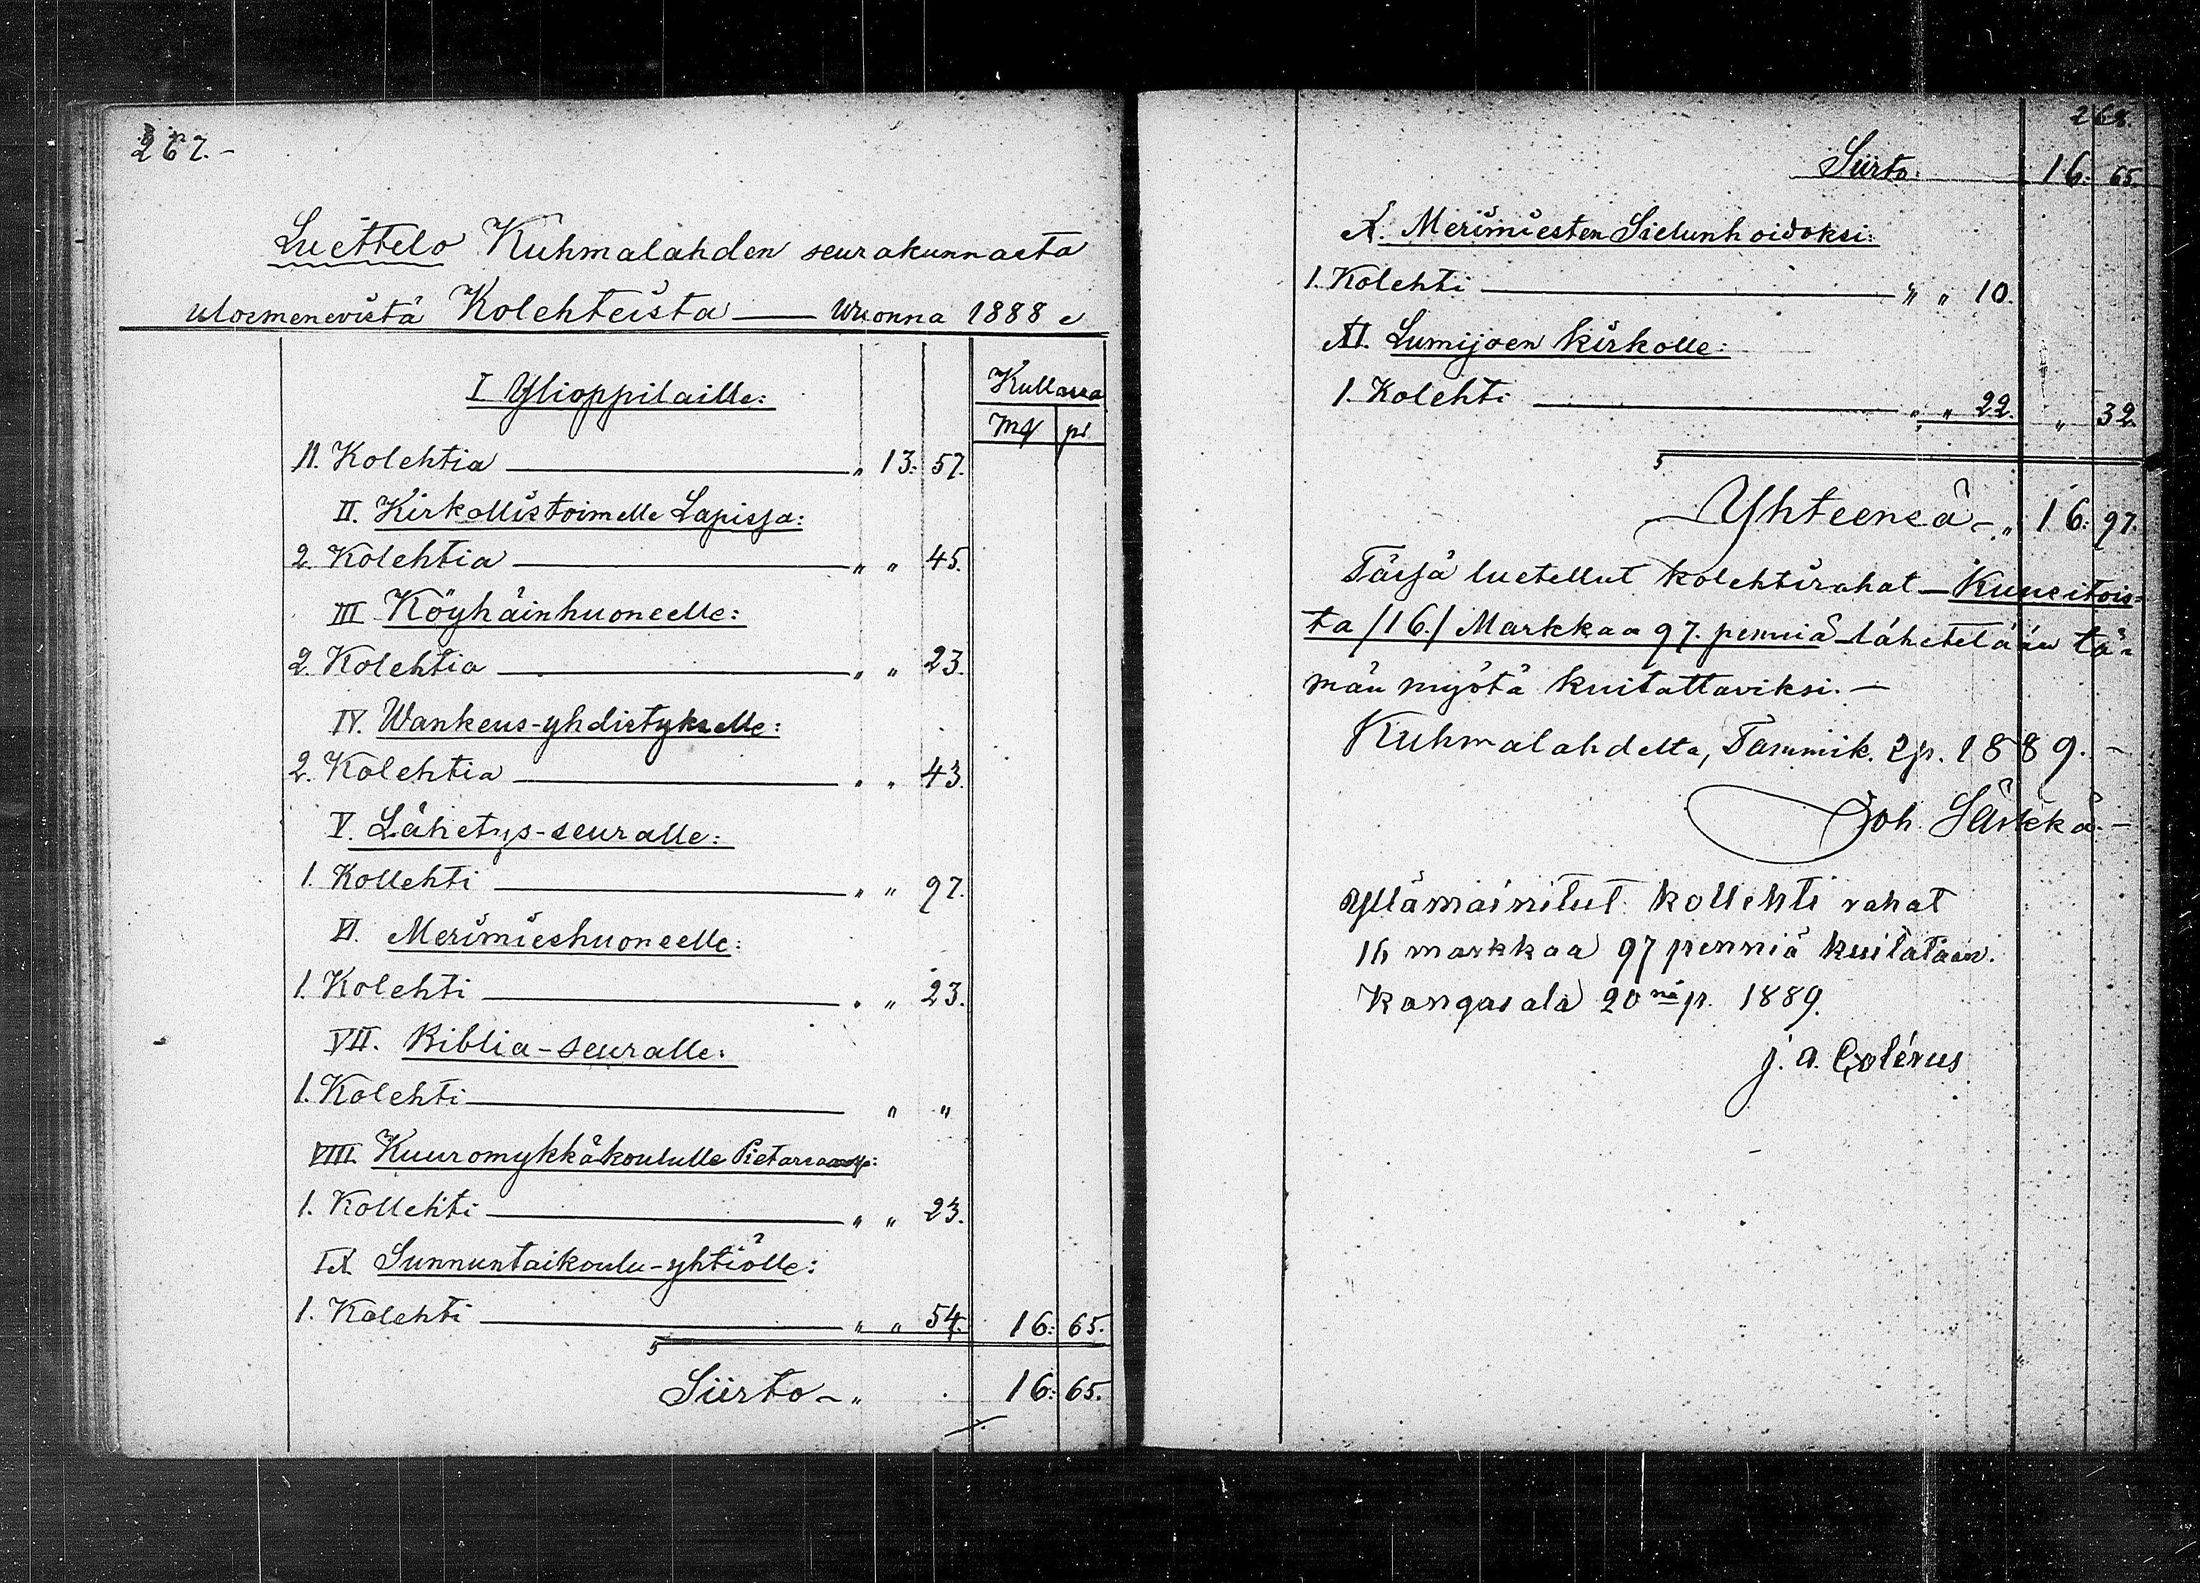 267.-
Luettelo Kuhmalahden seurakunnasta
ulosmenevistä Kolehteista — Wuonna 1888
Kullassa
I Ylioppilaille:
Mk pi
11. Kolehtia — „ 13: 57.
II. Kirkollistoimelle Lapissa:
2. Kolehtia — „ „ 45.
III Köyhäinhuoneelle:
2. Kolehtia — „ „ 23.
IV. Wankeus-yhdistykselle:
2. Kolehtia — „ „ 43.
V. Lähetys-seuralle:
1. Kollehti — „ „ 97.
VI. Merimieshuoneelle:
1. Kolehti — „ „ 23.
VII. Biblia-seuralle:
1. Kolehti — „ „
VIII. Kuuromykkäkoululle
1. Kollehti — „ „ 23.
IX Sunnuntaikoulu-yhtiölle:
1. Kolehti — „ „ 54. 16: 65.
Siirto — „ 16: 65.
268.
Siirto 16: 65.
X. Merimiesten Sielunhoidoksi:
1. Kolehti — „ „ 10.
XI. Lumijoen kirkolle:
1. Kolehti — „ „ 22. „ 32.
Yhteensä — „ 16: 97.
Tässä luetellut kolehtirahat — Kuusitois=
ta /16./ Markkaa 97. penniä lähetetään tä=
män myötä kuitattaviksi. —
Kuhmalahdelta, Tammik. 2 p. 1889. —
Joh. Särkkä. —
Yllämainitut kollehti rahat
16 markkaa 97 penniä kuitataan.
Kangasala 20 nä p. 1889.
J. A. Colérus